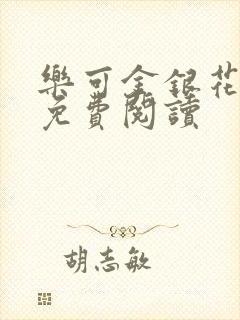 樂可金銀花
免費閱讀
胡志敏